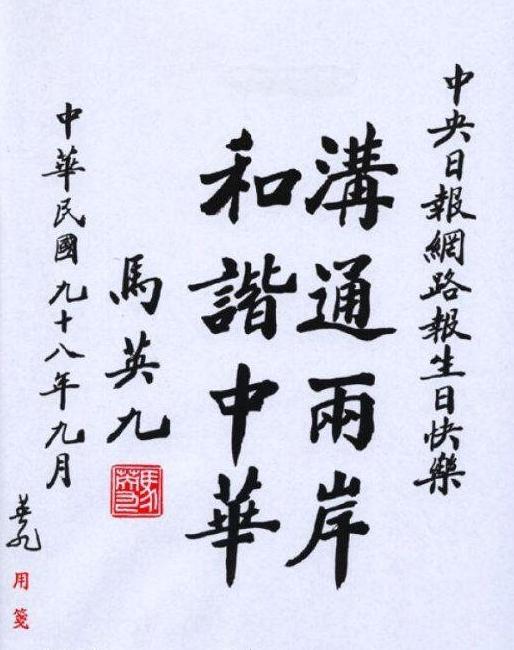 中央日報網路報生日快樂
溝通兩岸
和諧中華
馬英九
馬英九
中華民國九十八年九月
英九
用箋